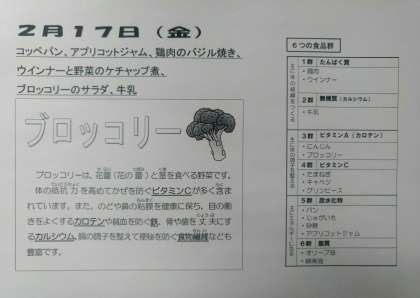 2月17日(金)
コッペパン、アプリコットジャム、鶏肉のバジル焼き、
ウインナーと野菜のケチャップ煮、
ブロッコリーのサラダ、牛乳
ブロッコリー
ブロッコリーは、花蕾(花の蕾)と茎を食べる野菜です。
体の抵抗力を高めてかぜを防ぐビタミンCが多く含ま
れています。また、のどや鼻の粘膜を健康に保ち、目の働
きをよくするカロテンや貧血を防ぐ鉄、骨や歯を丈夫にす
るカルシウム、腸の調子を整えて便秘を防ぐ食物繊維なども
豊富です。
6つの食品群
主に体の組織をつくる
1群 たんぱく質
・鶏肉
・ウインナー
2群 無機質(カルシウム)
・牛乳
主に体の調子を整える
3群 ビタミンA(カロテン)
・にんじん
・ブロッコリー
4群 ビタミンC
・たまねぎ
・キャベツ
・グリンピース
主にエネルギーになる
5群 炭水化物
・パン
・じゃがいも
・砂糖
・アプリコットジャム
6群 脂質
・オリーブ油